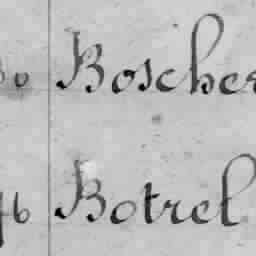 Boscher
Botrel